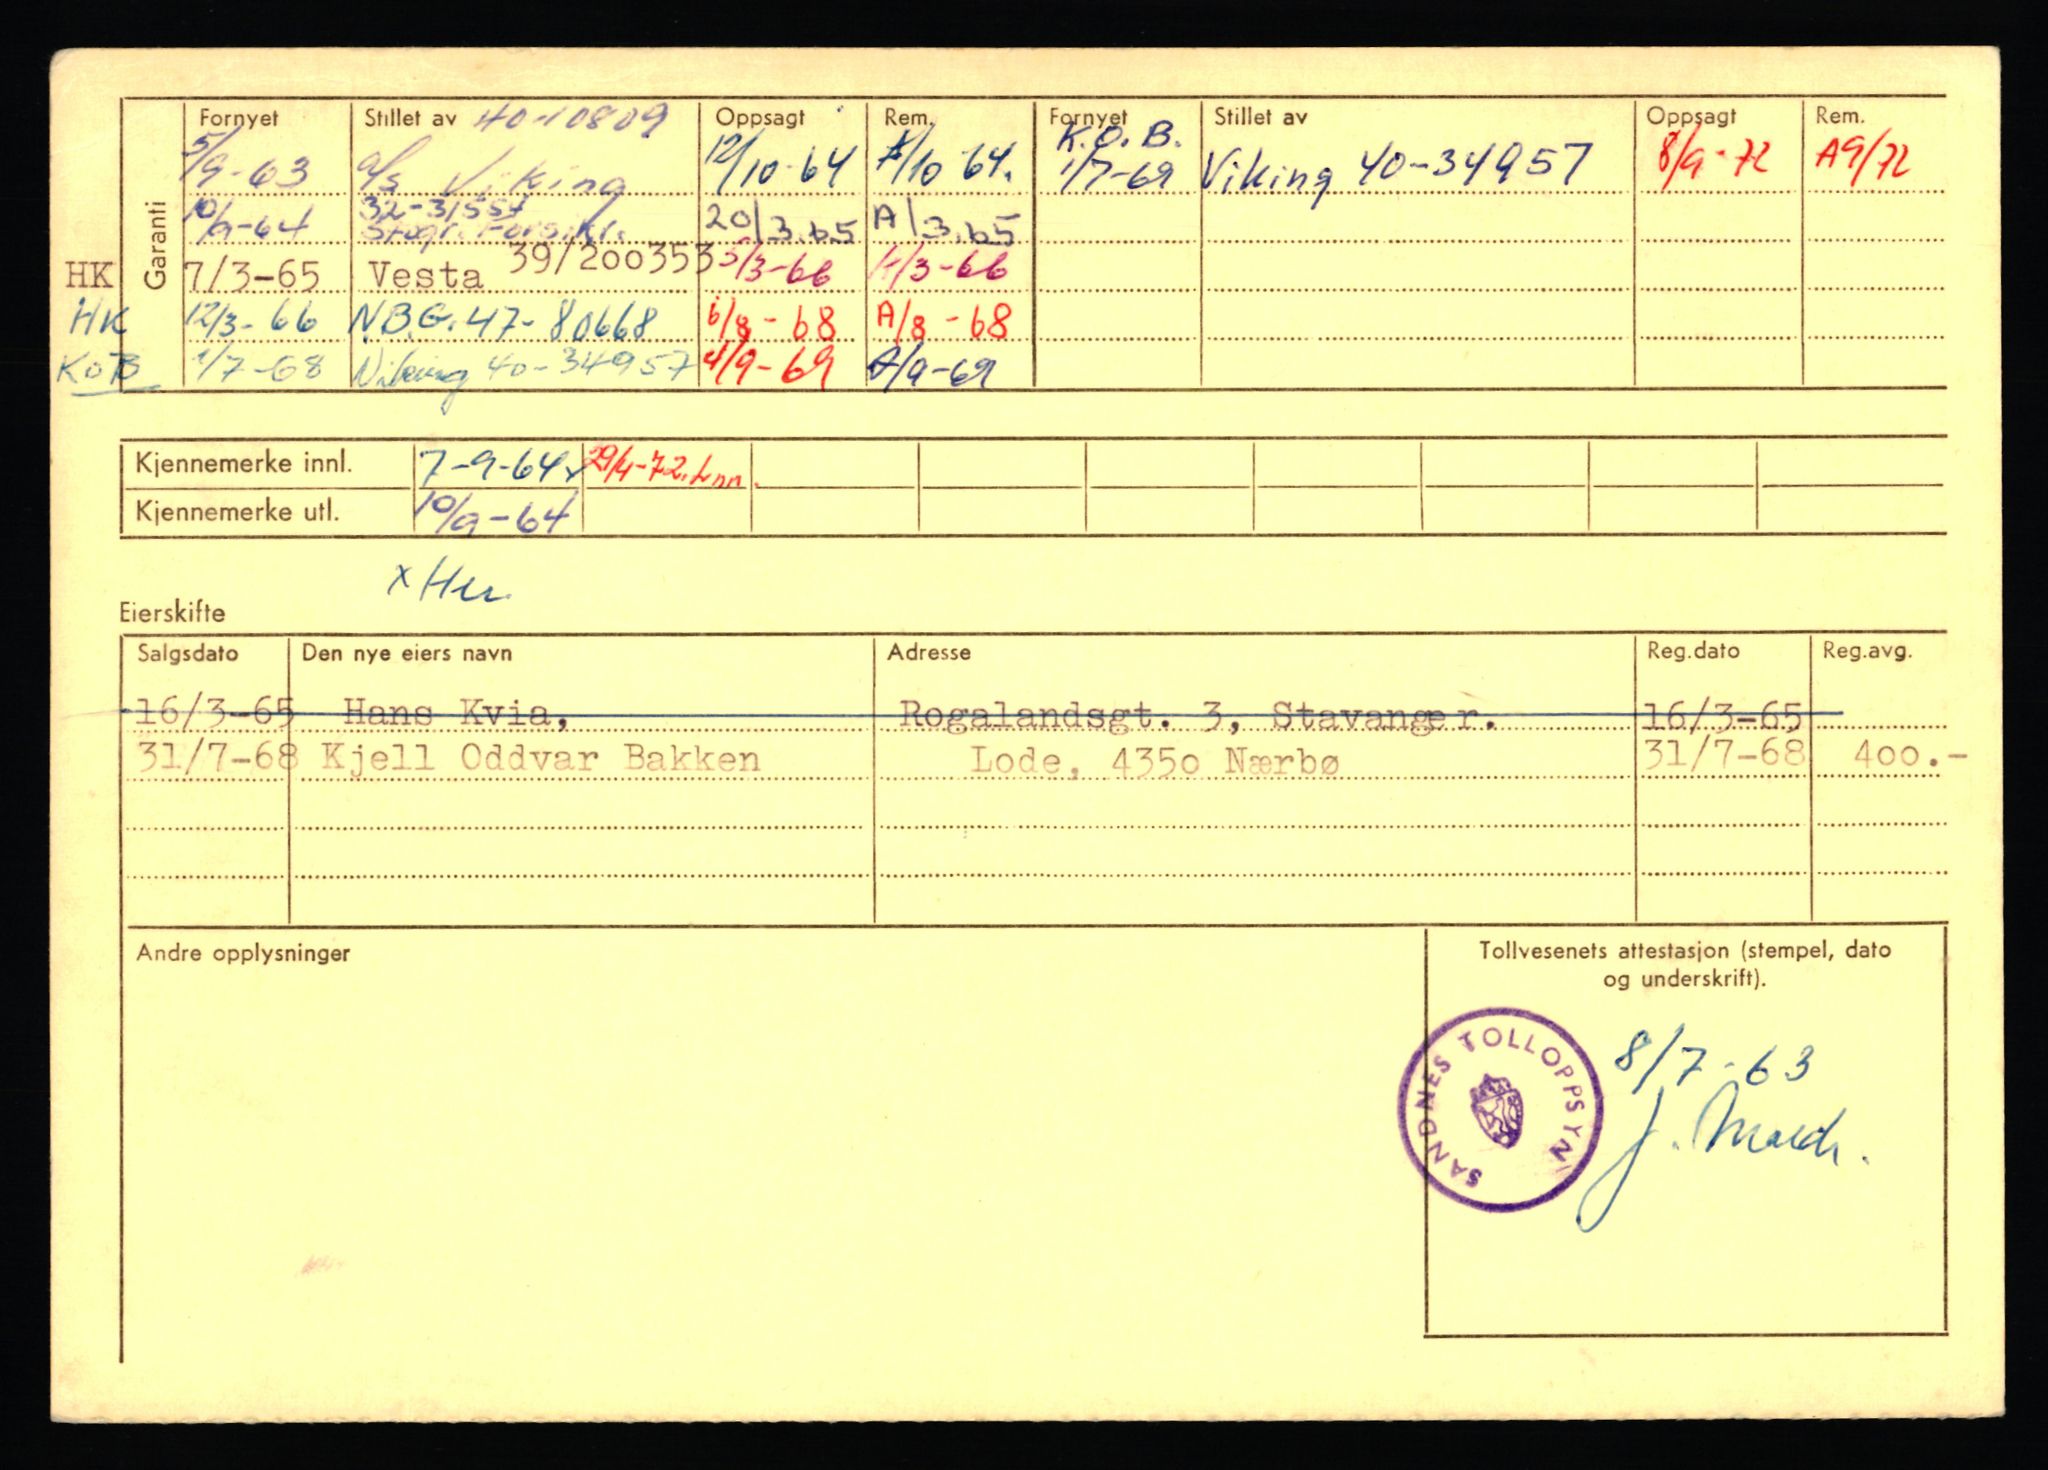 Garanti
Fornyet Stillet av 40-10809 Oppsagt Rem. Fornyet Stillet av Oppsagt Rem.
5/9-63 a/s Viking 12/10-64 /10-64. K.O.B. 1/7-69 Viking 40-34957 8/9-72 A9/72
10/9-64 Forsikr. 20/3.65 A/3.65
HK 7/3-65 Vesta 39/200353 5/3-66 /3-66
HK 12/3-66 N.B.G. 47-80668 6/8-68 A/8-68
KOB 1/7-68 Viking 40-34957 4/9-69 A/9-69
Kjennemerke innl. 7-9-64x 29/4-72.
Kjennemerke utl. 10/9-64
x
Eierskifte
Salgsdato Den nye eiers navn Adresse Reg.dato Reg.avg.
16/3-65 Hans Kvia, Rogalandsgt. 3, Stavanger. 16/3-65
31/7-68 Kjell Oddvar Bakken Lode, 4350 Nærbø 31/7-68 400.-
Andre opplysninger
Tollvesenets attestasjon (stempel, dato
og underskrift).
SANDNES TOLLOPPSYN
8/7-63
J.